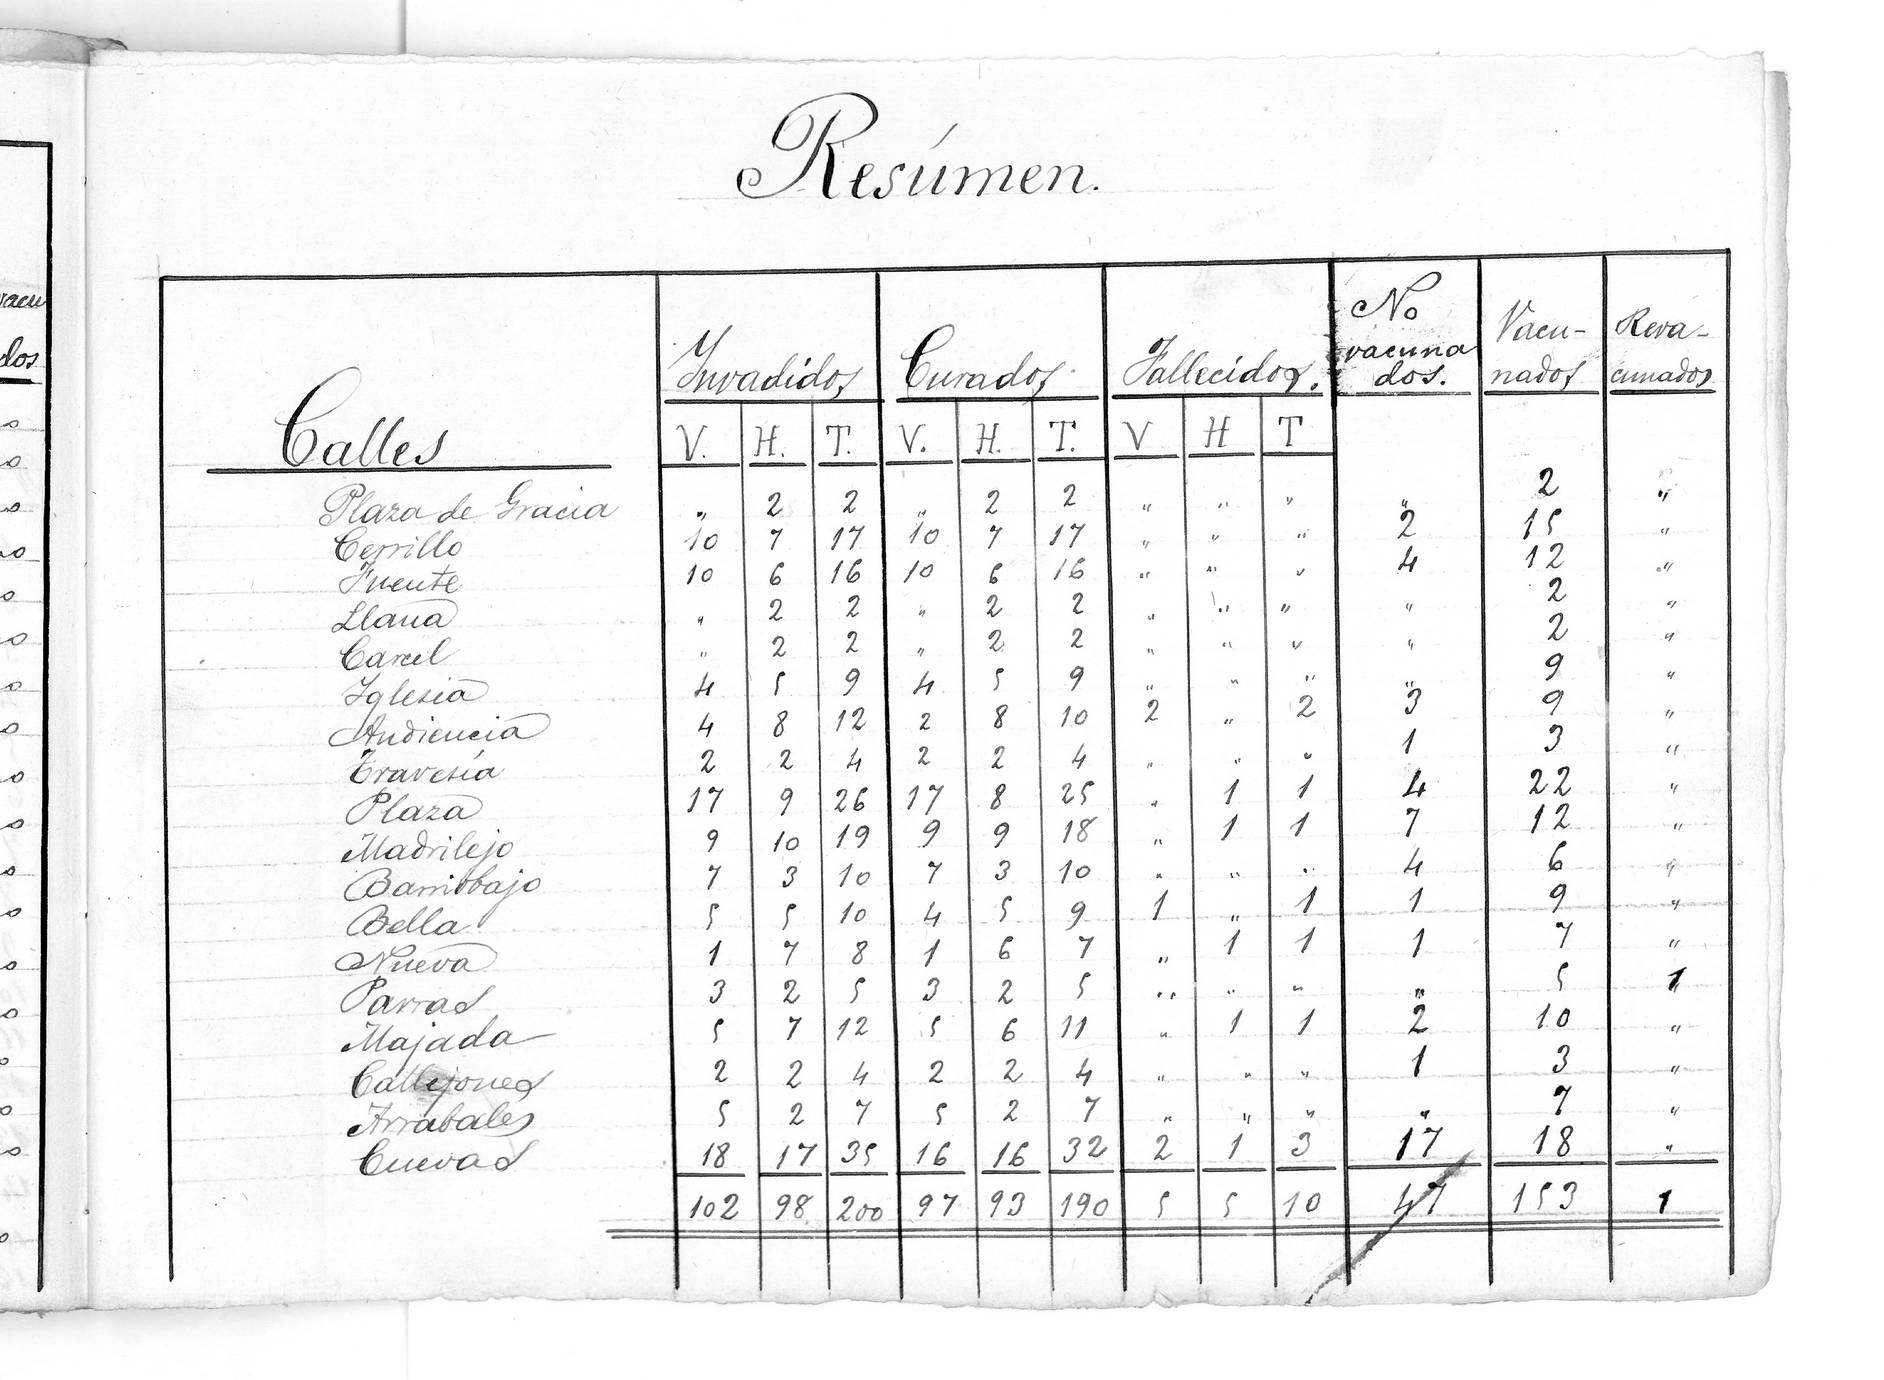 vacu
dos
Resúmen.
Calles Invadidos Curados Fallecidos. No vacunados. Vacu-nados Reva-cunados
V. H. T. V. H. T. V H T
Plaza de Gracia „ 2 2 „ 2 2 „ „ „ „ 2 „
Cerrillo 10 7 17 10 7 17 „ „ „ 2 15 „
Fuente 10 6 16 10 6 16 „ „ „ 4 12 „
Llana „ 2 2 „ 2 2 „ „ „ „ 2 „
Carcel „ 2 2 „ 2 2 „ „ „ „ 2 „
Iglesia 4 5 9 4 5 9 „ „ „ „ 9 „
Audiencia 4 8 12 2 8 10 2 „ 2 3 9 „
Travesía 2 2 4 2 2 4 „ „ „ 1 3 „
Plaza 17 9 26 17 8 25 „ 1 1 4 22 „
Madrilejo 9 10 19 9 9 18 „ 1 1 7 12 „
Barriobajo 7 3 10 7 3 10 „ „ „ 4 6 „
Bella 5 5 10 4 5 9 1 „ 1 1 9 „
Nueva 1 7 8 1 6 7 „ 1 1 1 7 „
Parras 3 2 5 3 2 5 „ „ „ „ 5 1
Majada 5 7 12 5 6 11 „ 1 1 2 10 „
Callejones 2 2 4 2 2 4 „ „ „ 1 3 „
Arrabales 5 2 7 5 2 7 „ „ „ „ 7 „
Cuevas 18 17 35 16 16 32 2 1 3 17 18 „
102 98 200 97 93 190 5 5 10 47 153 1